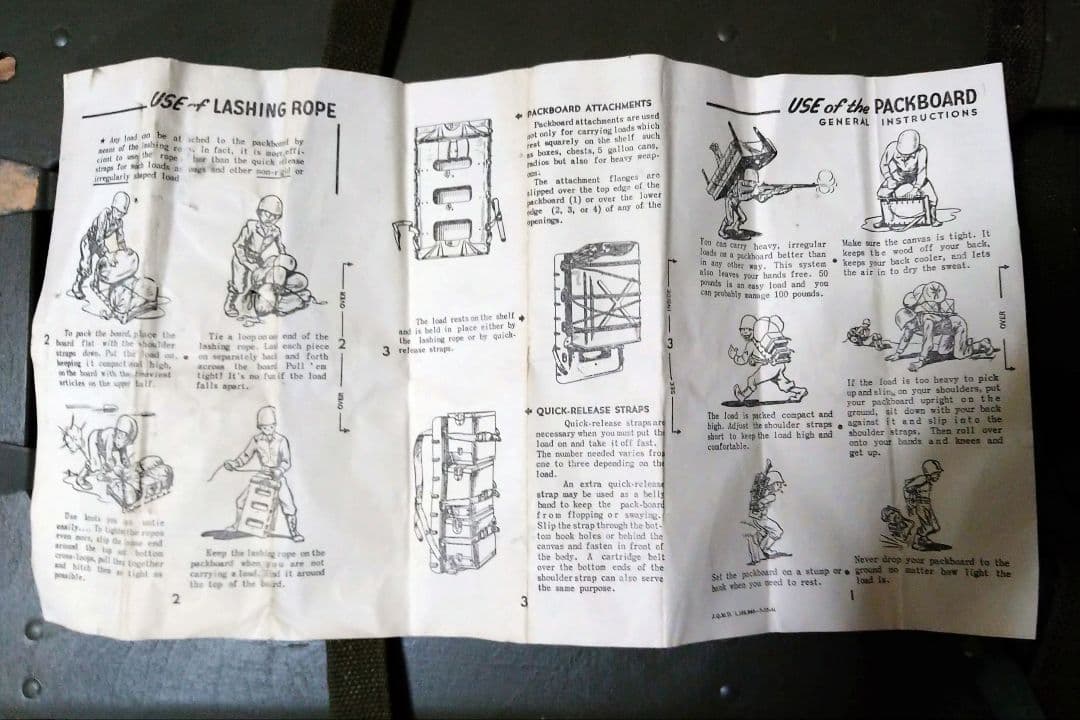 USE of LASHING ROPE
★ Any load can be attached to the packboard by
means of the lashing rope. In fact, it is more effi-
cient to use the rope rather than the quick release
straps for such loads as bags and other non-rigid or
irregularly shaped load
To pack the board, place the
2 board flat with the shoulder
straps down. Put the load on,
keeping it compact and high,
on the board with the heaviest
articles on the upper half.
Tie a loop on one end of the
lashing rope. Lash each piece
on separately back and forth
across the board Pull 'em
tight! It's no fun if the load
falls apart.
OVER
2
OVER
Use knots you can untie
easily.... To tighten the ropes
even more, slip the loose end
around the top and bottom
cross-loops, pull them together
and hitch them as tight as
possible.
Keep the lashing rope on the
packboard when you are not
carrying a load. Wind it around
the top of the board.
2
PACKBOARD ATTACHMENTS
Packboard attachments are used
not only for carrying loads which
rest squarely on the shelf such
as boxes, chests, 5 gallon cans,
radios but also for heavy weap-
ons.
The attachment flanges are
slipped over the top edge of the
packboard (1) or over the lower
edge (2, 3, or 4) of any of the
openings.
The load rests on the shelf
and is held in place either by
the lashing rope or by quick-
3 release straps.
QUICK-RELEASE STRAPS
Quick-release straps are
necessary when you must put the
load on and take it off fast.
The number needed varies from
one to three depending on the
load.
An extra quick-release
strap may be used as a belly
band to keep the pack-board
from flopping or swaying.
Slip the strap through the bot-
tom hook holes or behind the
canvas and fasten in front of
the body. A cartridge belt
over the bottom ends of the
shoulder strap can also serve
the same purpose.
3
INSIDE
3
SEE
USE of the PACKBOARD
GENERAL INSTRUCTIONS
You can carry heavy, irregular
loads on a packboard better than
in any other way. This system
also leaves your hands free. 50
pounds is an easy load and you
can probably manage 100 pounds.
Make sure the canvas is tight. It
keeps the wood off your back,
keeps your back cooler, and lets
the air in to dry the sweat.
OVER
The load is packed compact and
high. Adjust the shoulder straps
short to keep the load high and
comfortable.
If the load is too heavy to pick
up and sling on your shoulders, put
your packboard upright on the
ground, sit down with your back
against it and slip into the
shoulder straps. Then roll over
onto your hands and knees and
get up.
Set the packboard on a stump or
bank when you need to rest.
Never drop your packboard to the
ground no matter how light the
load is.
1
J.Q.M.D.